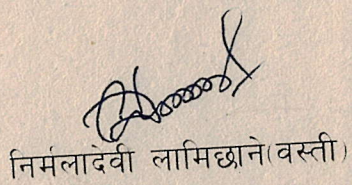 निर्मलादेवी लामिछाने (वस्ती)